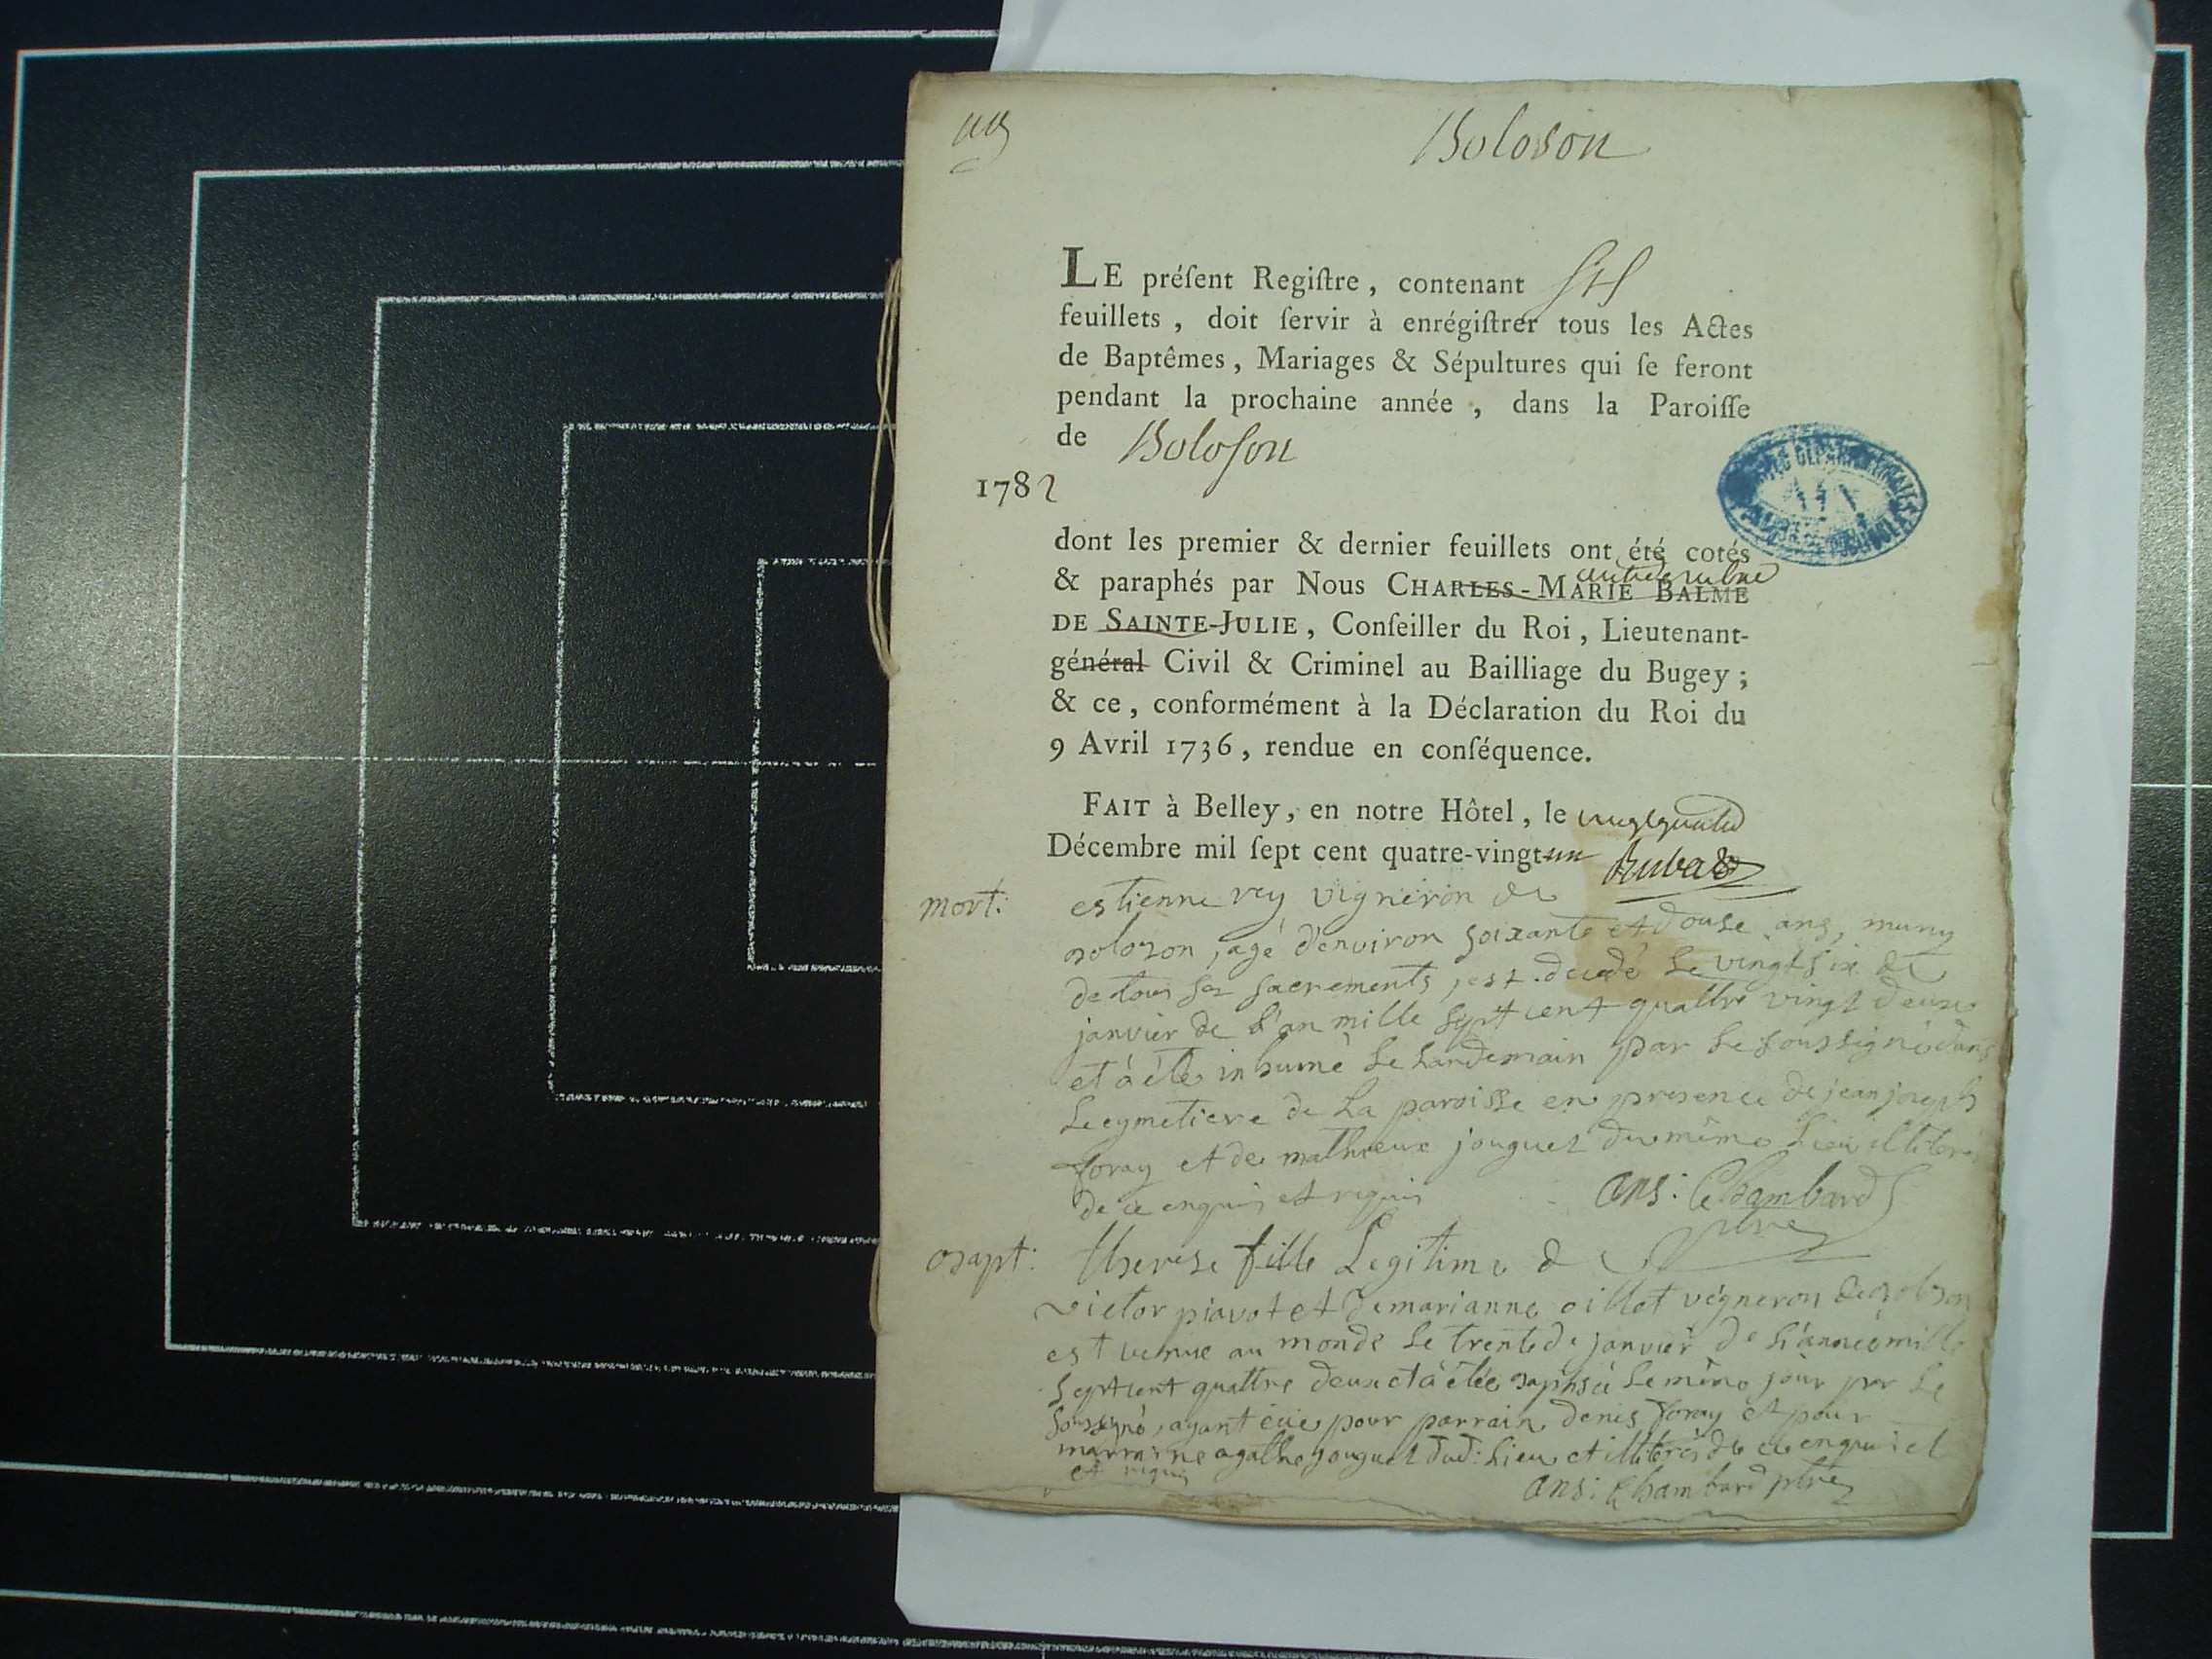 Boloson
LE préſent Regiſtre, contenant six
feuillets, doit ſervir à enrégiſtrer tous les Actes
de Baptêmes, Mariages & Sépultures qui ſe feront
pendant la prochaine année, dans la Paroiſſe
de Boloſon
1782
dont les premier & dernier feuillets ont été cotés
& paraphés par Nous CHARLES-MARIE BALME
DE SAINTE-JULIE, Conſeiller du Roi, Lieutenant-
général Civil & Criminel au Bailliage du Bugey ;
& ce, conformément à la Déclaration du Roi du
9 Avril 1736, rendue en conſéquence.
FAIT à Belley, en notre Hôtel, le vingt quatre
Décembre mil ſept cent quatre-vingt-un
mort: estienne rey vigneron de
bolozon, agé d'environ soixante et douse ans, muny
de tous ses sacrements, est decedé le vingt six de
janvier de l'an mille sept cent quattre vingt deux
et à été inhumé le landemain par le soussigné dans
le cymetiere de la paroisse en presence de jean joseph
foray et de mathieux jouguet du même lieu illiterés
de ce enquis et requis ans: Chambard
ptre
bapt: therese fille Legitime de
victor piavot et de marianne oillet vigneron de bolozon
est venue au monde le trente de janvier de l'année mille
sept cent quattre deux et à étée baptisée le même jour par le
soussigné, ayant eüe pour parrain denis foray et pour
marraine agathe jouguet dud: lieu et illiterés de ce enquis et
et requis
ans: Chambard ptre